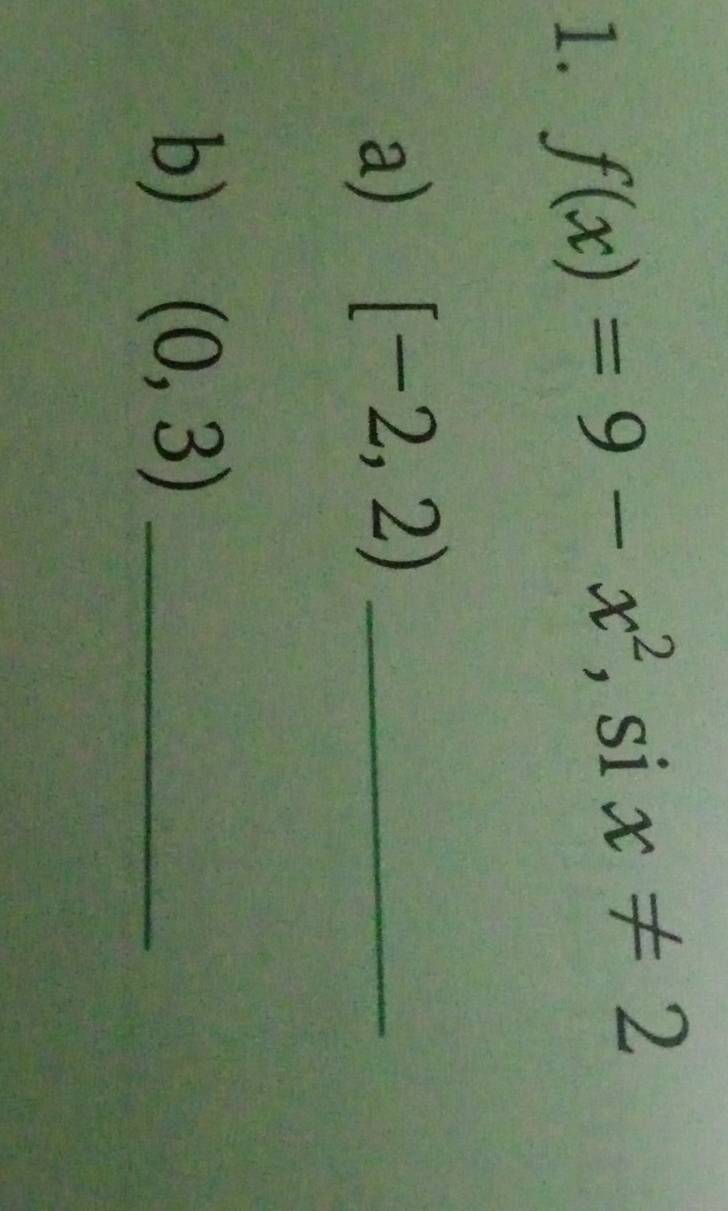 1. f(x) = 9 − x², si x ≠ 2
a) [−2, 2)
b) (0, 3)